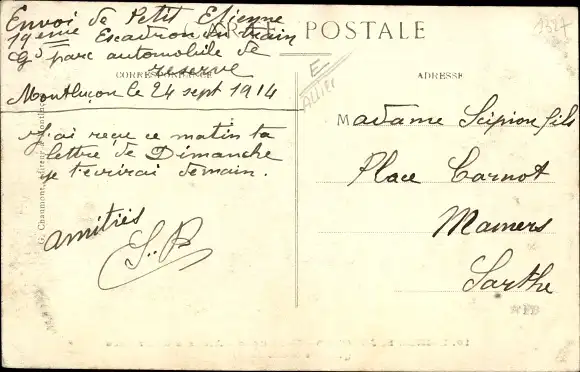 Envoi de Petit Etienne
19eme Escadron du train
Gd parc automobile de
reserve
CARTE POSTALE
CORRESPONDANCE
Montluçon le 24 sept 1914
J'ai reçu ce matin ta
lettre de Dimanche
je t'écrirai demain.
amitiés
S..P
E
ALLIER
1327
ADRESSE
Madame Scipion fils
Place Carnot
Mamers
Sarthe